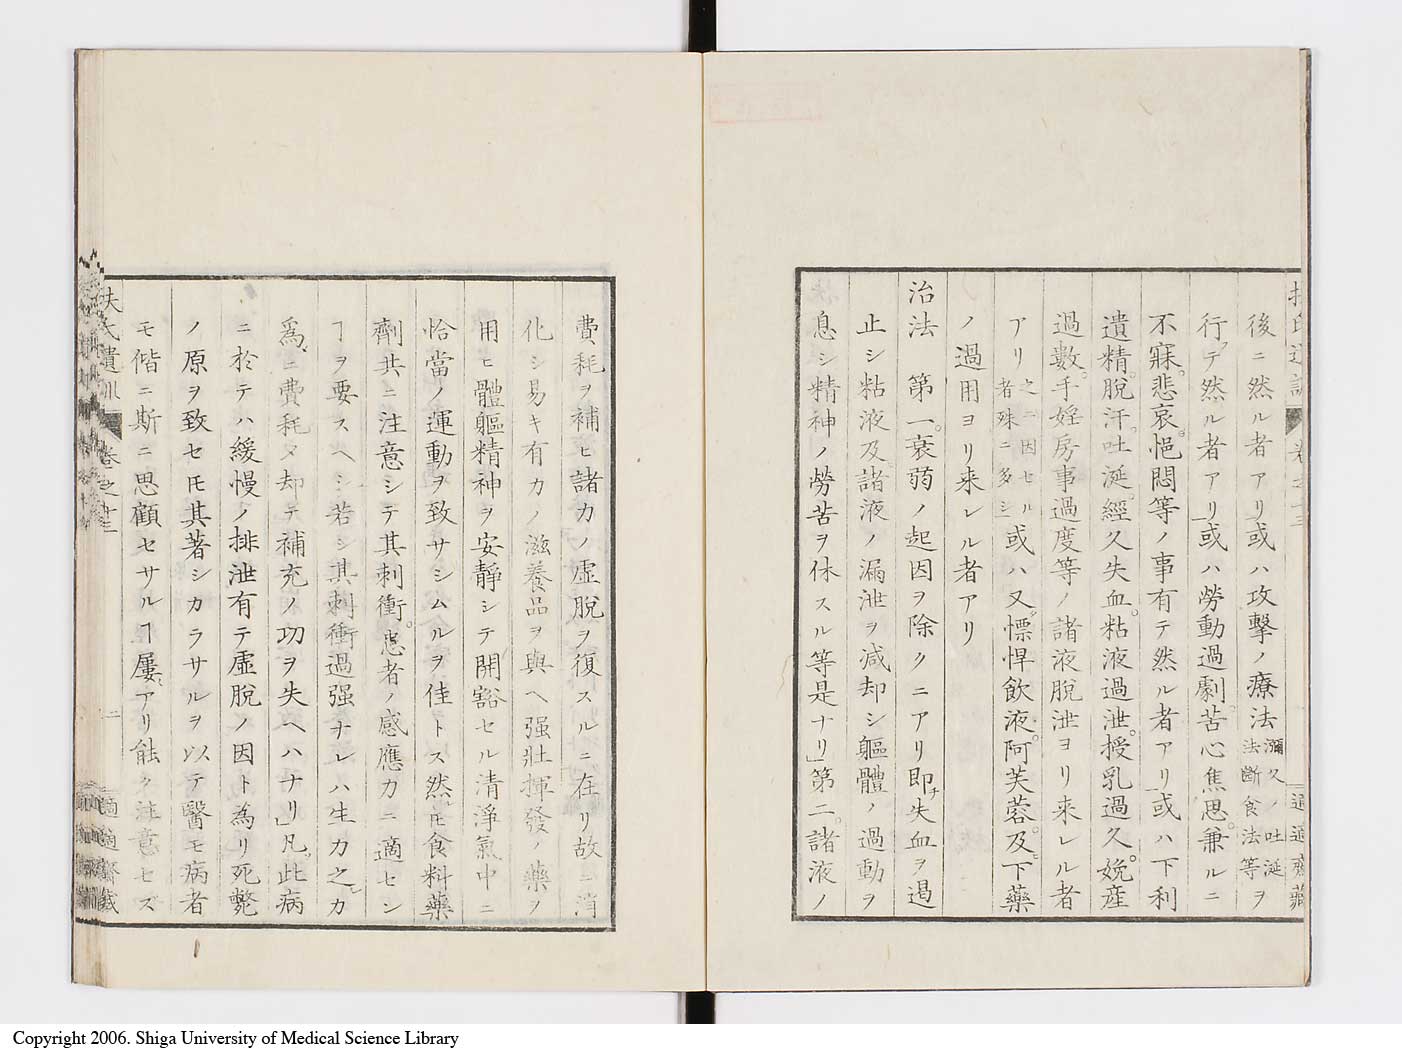 後ニ然ル者アリ或ハ攻擊ノ療法瀰久ノ吐涎法斷食法等ヲ
行テ然ル者アリ」或ハ勞動過劇苦心焦思。兼ルニ
不寐。悲哀。悒悶等ノ事有テ然ル者アリ」或ハ下利
遺精。脫汗。吐涎。經久失血。粘液過泄。授乳過久。娩産
過數。手婬房事過度等ノ諸液脫泄ヨリ来レル者
アリ之ニ因セル者殊ニ多シ或ハ又慓悍飲液。阿芙蓉。及ヒ下藥
ノ過用ヨリ来レル者アリ
治法 第一。衰弱ノ起因ヲ除クニアリ即チ失血ヲ遏
止シ粘液及諸液ノ漏泄ヲ減却シ軀體ノ過動ヲ
息シ精神ノ勞苦ヲ休スル等是ナリ」第二。諸液ノ
費耗ヲ補ヒ諸力ノ虛脫ヲ復スルニ在リ故ニ消
化シ易キ有力ノ滋養品ヲ與ヘ强壯揮發ノ藥ヲ
用ヒ體軀精神ヲ安靜シテ開豁セル清淨氣中ニ
恰當ノ運動ヲ致サシムルヲ佳トス然ルヒ食料藥
劑共ニ注意シテ其刺衝。患者ノ感應力ニ適セン
ヿヲ要スヘシ若シ其刺衝過强ナレハ生力之カ
爲ニ費耗メ却テ補充ノ功ヲ失ヘハナリ」凡此病
ニ於テハ緩慢ノ排泄有テ虛脫ノ因ト為リ死斃
ノ原ヲ致セモ其著シカラサルヲ以テ醫モ病者
モ偕ニ斯ニ思顧セサルヿ屢アリ能ク注意セズ
扶氏遺訓 卷之十三 二 適適齋藏
Copyright 2006. Shiga University of Medical Science Library